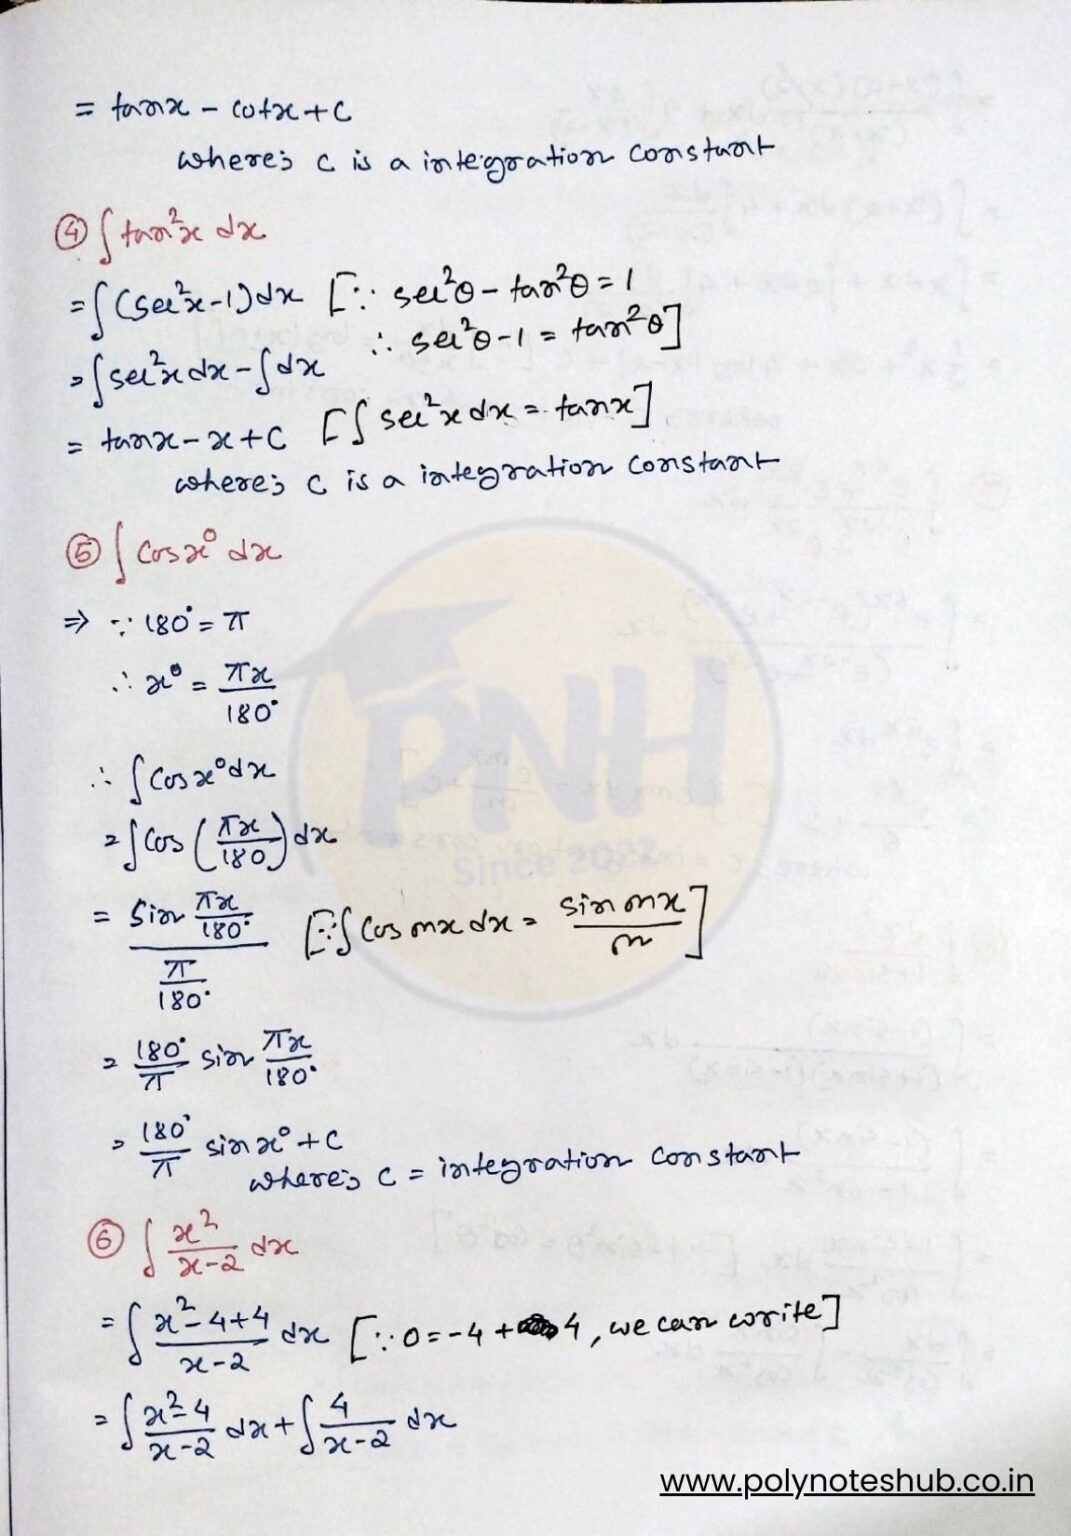 = tanx - cotx + C
where; C is a integration constant
④ ∫ tan²x dx
= ∫ (sec²x-1) dx [∵ sec²θ - tan²θ = 1
∴ sec²θ-1 = tan²θ]
= ∫ sec²x dx - ∫ dx
= tanx - x + C [∫ sec²x dx = tanx]
where; C is a integration constant
⑤ ∫ Cos x° dx
⇒ ∵ 180° = π
∴ x° = πx/180°
∴ ∫ Cos x° dx
= ∫ Cos (πx/180) dx
= (Sin πx/180°)/(π/180°) [∵ ∫ Cos mx dx = sin mx/m]
= 180°/π sin πx/180°
= 180°/π sin x° + C
where; C = integration constant
⑥ ∫ x²/(x-2) dx
= ∫ (x²-4+4)/(x-2) dx [∵ 0 = -4 + 4, we can write]
= ∫ (x²-4)/(x-2) dx + ∫ 4/(x-2) dx
PNH
Since 2022
www.polynoteshub.co.in